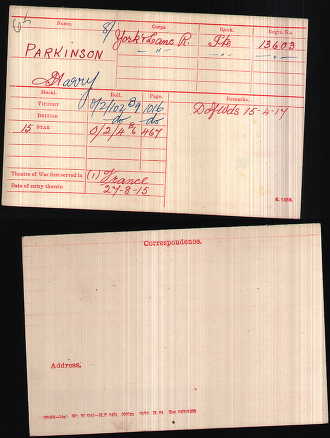 Name. Corps. Rank. Regtl. No.
PARKINSON
8/ York & Lanc R. Pte 13603
— " — — " —
Harry
Medal. Roll. Page. Remarks.
VICTORY 0/2/102 B9 1016 D of Wds 15-4-17
BRITISH do do
15 STAR 0/2/4 B 467
Theatre of War first served in (1) France
Date of entry therein 27-8-15
K. 1380.
Correspondence.
Address.